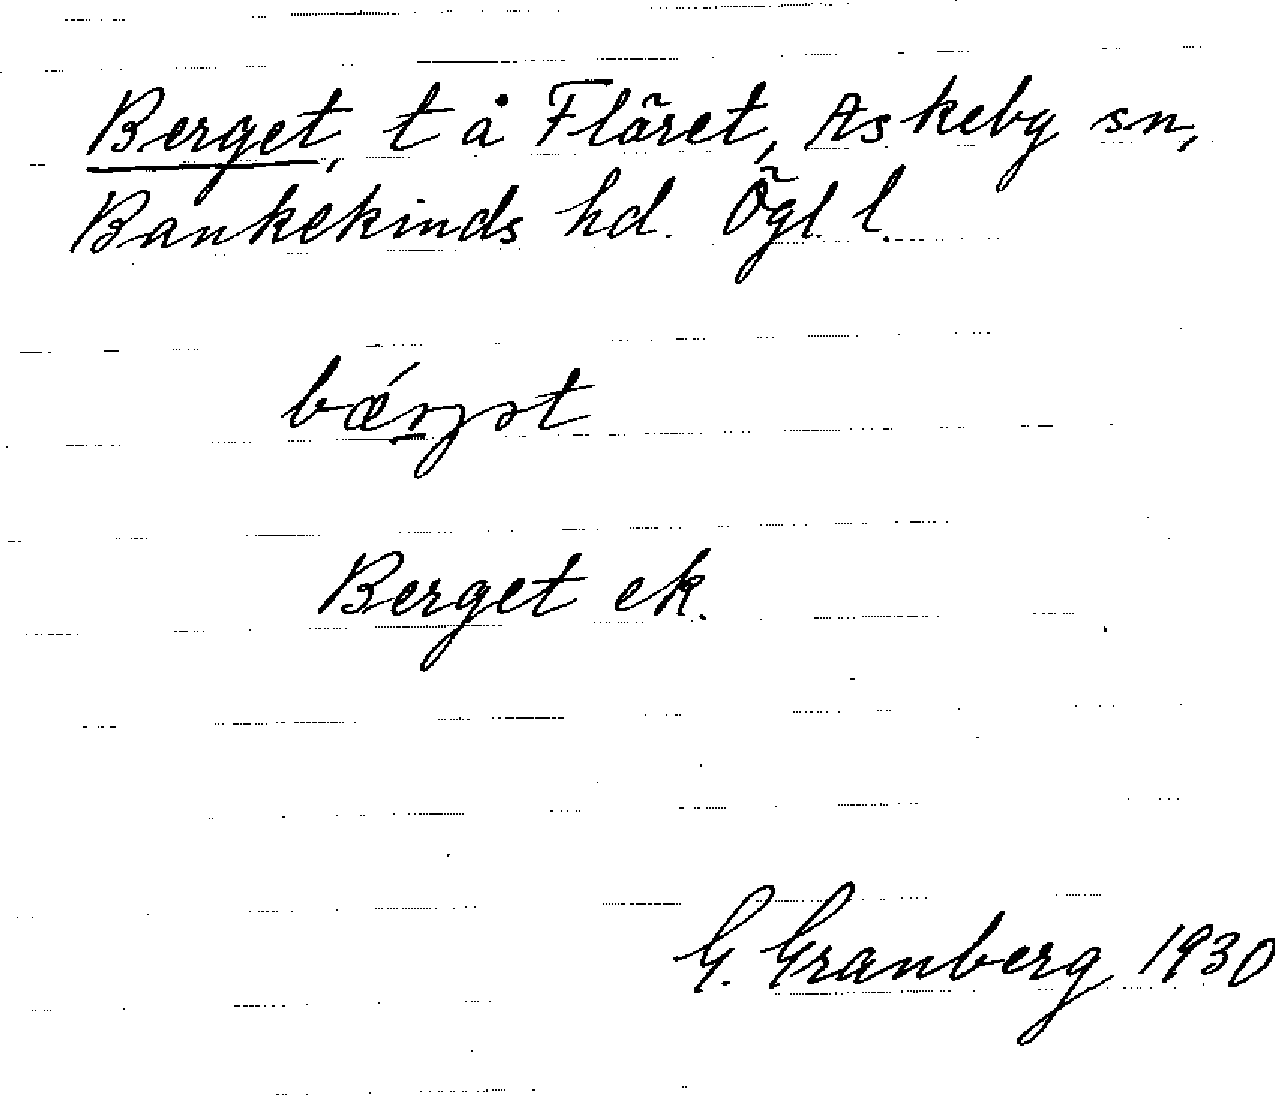 Berget, t å Flãret, Askeby sn,
Bankekinds hd. Õgl l.
Berget ek.
G. Granberg 1930